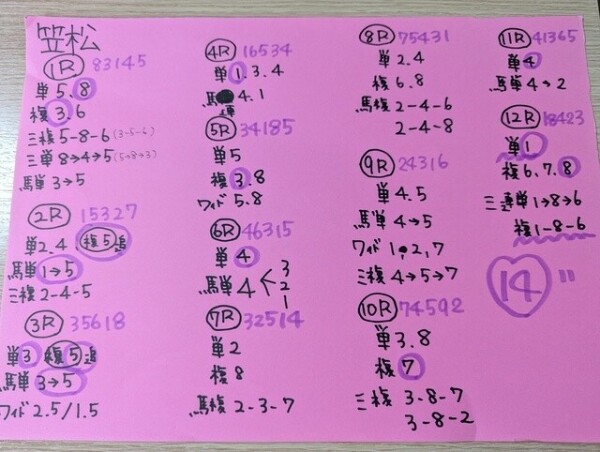 笠松
1R 83145
単 5.8
複 3.6
三複 5-8-6 (3-5-6)
三単 8→4→5 (5→8→3)
馬単 3→5
2R 15327
単 2.4 複5追
馬単 1→5
三複 2-4-5
3R 35618
単 3 複5追
馬単 3→5
ワイド 2.5/1.5
4R 16534
単 1.3.4
馬連 4.1
5R 34185
単 5
複 3.8
ワイド 5.8
6R 46315
単 4
馬単 4< 3 2 1
7R 32514
単 2
複 8
馬複 2-3-7
8R 75431
単 2.4
複 6.8
馬複 2-4-6
2-4-8
9R 24316
単 4.5
馬単 4→5
ワイド 1.2,7
三複 4→5→7
10R 74592
単 3.8
複 7
三複 3-8-7
3-8-2
11R 41365
単 4
馬単 4→2
12R 18423
単 1
複 6.7.8
三連単 1→8→6
複 1-8-6
14"